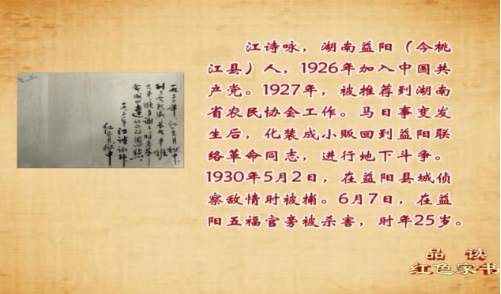 江诗咏，湖南益阳（今桃
江县）人，1926年加入中国共
产党。1927年，被推荐到湖南
省农民协会工作。马日事变发
生后，化装成小贩回到益阳联
络革命同志，进行地下斗争。
1930年5月2日，在益阳县城侦
察敌情时被捕。6月7日，在益
阳五福宫旁被杀害，时年25岁。
品读
红色家书